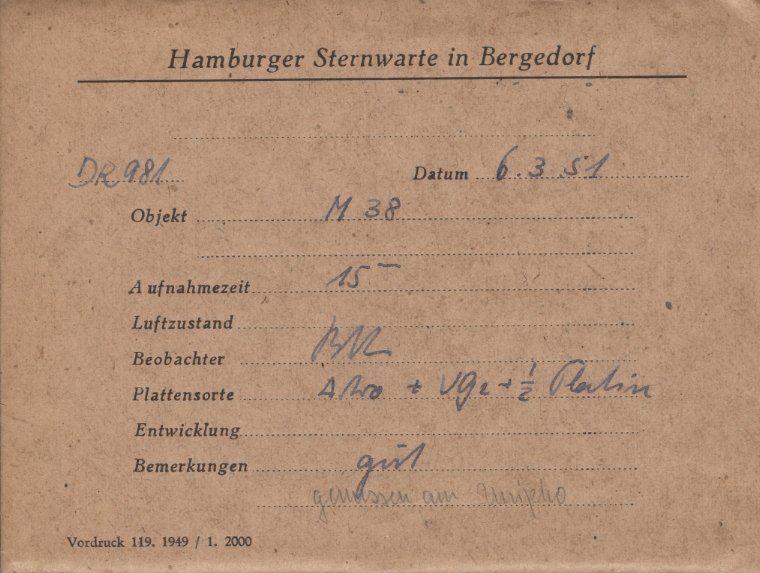 Hamburger Sternwarte in Bergedorf
DR 981 Datum 6.3.51
Objekt M 38
Aufnahmezeit 15 –
Luftzustand
Beobachter
Plattensorte + + ½ Platin
Entwicklung
Bemerkungen gut
gemessen am
Vordruck 119. 1949 / 1. 2000